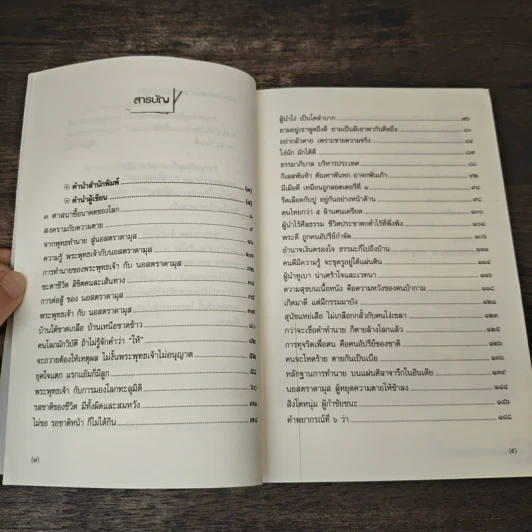 สารบัญ
คำนำสำนักพิมพ์ (๓)
คำนำผู้เขียน (๕)
๓ ศาสนาชื้อนาคตของโลก ๑
สงครามกับความตาย ๙
จากพุทธทำนาย สู่นอสตราดามุส
ความรู้ พระพุทธเจ้ากับนอสตราดามุส ๒๗
การทำนายของพระพุทธเจ้า กับ นอสตราดามุส
ชะตาชีวิต ลิขิตคนละเส้นทาง
การต่อสู้ ของ นอสตราดามุส ๓๕
พระพุทธเจ้า กับ นอสตราดามุส
บ้านใต้ขาดเกลือ บ้านเหนือขาดข้าว ๔๑
คนโลกมักวิบัติ ถ้าไม่รู้จักคำว่า "ให้"
จะถวายต้องให้เหตุผล ไม่งั้นพระพุทธเจ้าไม่อนุญาต ๕๒
ยุคใจแตก แรกแย้มก็มีลูก
พระพุทธเจ้า กับการมองโลกทะลุมิติ ๖๐
รสชาติของชีวิต มีทั้งผิดและสมหวัง ๗๑
ไม่ขอ รอชาติหน้า ก็ไม่ได้กิน ๗๔
(๘)
ผู้นำโง่ เป็นโคลำบาก ๗๖
ยามอยู่เขาพูดถึงดี ยามเป็นผีเขาพากันคิดถึง ๘๑
อย่ากลัวตาย เพราะชายความจริง ๘๔
โง่นัก มักได้ดี
ธรรมาภิบาล บริหารประเทศ ๘๘
กิเลสพันห้า ตัณหาพันหก ยาจกพันเก้า
มีเมียดี เหมือนถูกลอตเตอรี่ที่ ๑ ๙๔
รีดเลือดกับปู อยู่กันอย่างหน้าด้าน ๙๖
คนไทยกว่า ๕ ล้านคนเครียด ๑๐๐
ผู้นำไร้ศีลธรรม ชีวิตประชาตกค่ำไร้ที่พึ่งพิง ๑๐๓
พระดี ถูกคนอัปรีย์กำจัด ๑๐๖
อำนาจเงินครองใจ ธรรมะก็ไปถึงบ้าน
คนดีมีความรู้ จะชุครูอยู่ใต้แผ่นดิน
ผู้นำหูเบา น่าเศร้าใจและเวทนา ๑๑๖
ความสุขบนเนื้อหนัง คือความหวังของคนบ้ากาม
เกิดมาดี แต่มีกรรมมาบัง ๑๒๑
สุนัขแทบเสือ ไม่เกลือกกลั้วกับคนโง่เขลา
กว่าจะเชื่อคำทำนาย ก็ตายล้างโลกแล้ว
การทุจริตเพื่อตน คือคนอัปรีย์ของชาติ ๑๒๖
คนจะโหดร้าย ตายกันเป็นเบือ
หลักฐานการทำนาย บนแผ่นศิลาจารึกในอินเดีย ๑๓๙
นอสตราดามุส ผู้หยุดความตายให้ช้าลง
สิงโตหนุ่ม ผู้กำชัยชนะ ๑๔๖
คำพยากรณ์ที่ ๖ ว่า ๑๔๘